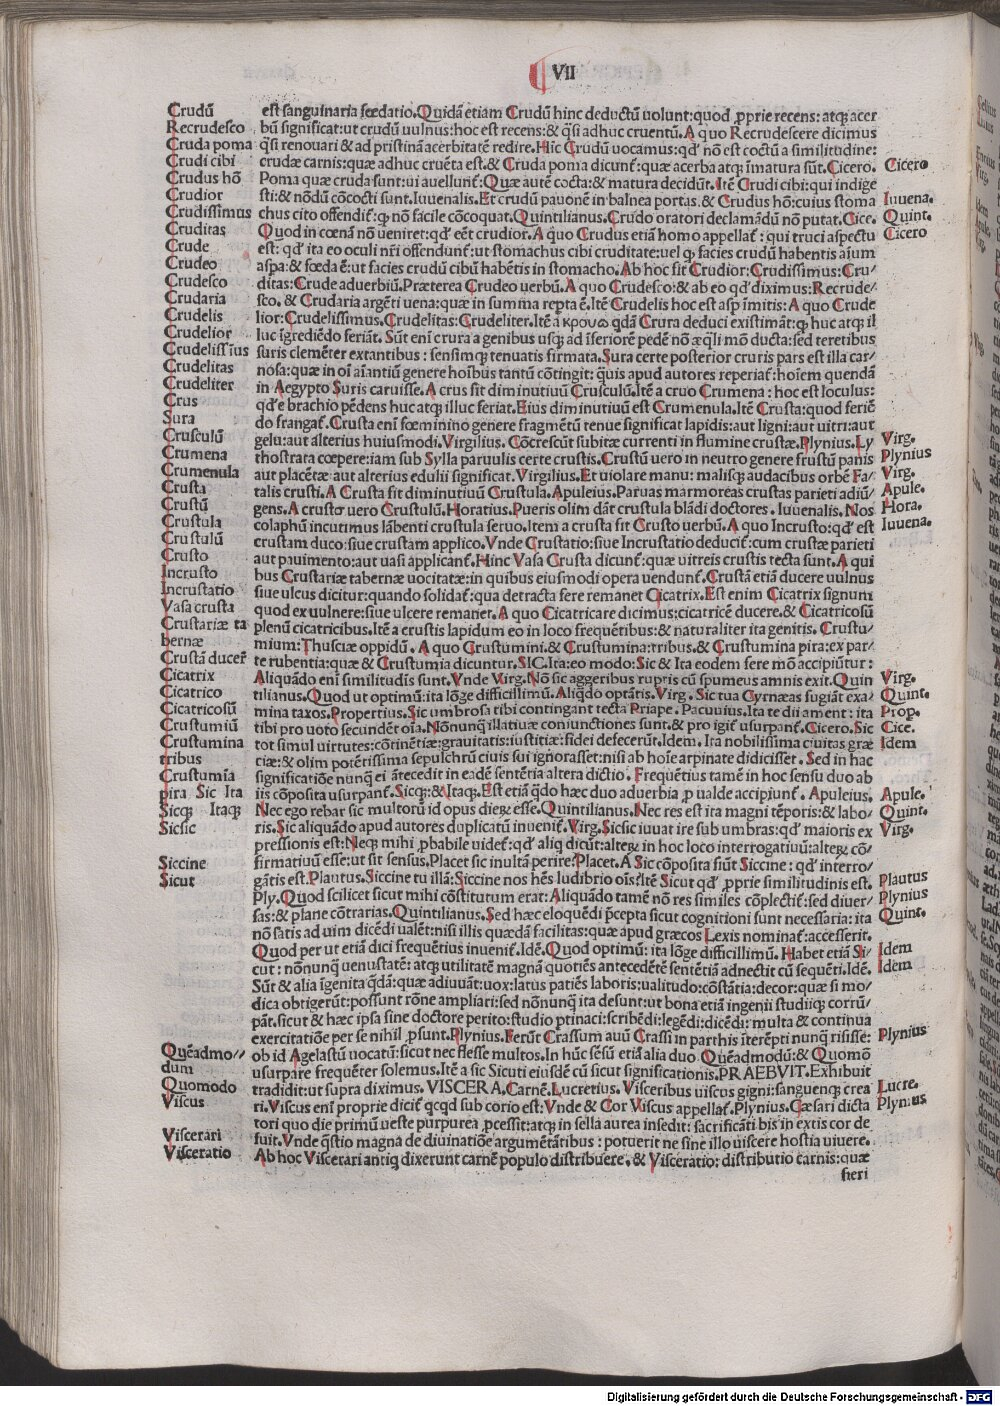 VII
Crudū
Recrudesco
Cruda poma
Crudi cibi
Crudus hō
Crudior
Crudissimus
Cruditas
Crude
Crudeo
Crudesco
Crudaria
Crudelis
Crudelior
Crudelissius
Crudelitas
Crudeliter
Crus
Sura
Crusculū
Crumena
Crumenula
Crusta
Crustū
Crustula
Crustulū
Crusto
Incrusto
Incrustatio
Vasa crusta
Crustariæ ta
bernæ
Crustā ducer̄
Cicatrix
Cicatrico
Cicatricosū
Crustumiū
Crustumina
tribus
Crustumia
pira Sic Ita
Sicq; Itaq;
Sicsic
Siccine
Sicut
Quēadmo//
dum
Quomodo
Viscus
Viscerari
Visceratio
est sanguinaria fœdatio.Quidā etiam Crudū hinc deductū uolunt:quod ꝓprie recens: atq; acer
bū significat:ut crudū uulnus:hoc est recens:& q̄si adhuc cruentū.A quo Recrudescere dicimus
q̄si renouari & ad pristinā acerbitatē redire.Hic Crudū uocamus:qd' nō est coctū a similitudine:
crudæ carnis:quæ adhuc cruēta est.& Cruda poma dicunt̄:quæ acerba atq; īmatura sūt.Cicero.
Poma quæ cruda sunt:ui auellunt̄:Quæ autē cocta:& matura decidūt.Itē Crudi cibi:qui indige
sti:& nōdū cōcocti sunt.Iuuenalis.Et crudū pauonē in balnea portas.& Crudus hō:cuius stoma
chus cito offendit̄:q; nō facile cōcoquat.Quintilianus.Crudo oratori declamādū nō putat.Cice.
Quod in cœnā nō ueniret:qd' eēt crudior.A quo Crudus etiā homo appellat̄: qui truci aspectu
est: qd' ita eo oculi nr̄i offendunt̄:ut stomachus cibi cruditate:uel q; facies crudū habentis aīum
aspa:& fœda ē:ut facies crudū cibū habētis in stomacho.Ab hoc fit Crudior:Crudissimus:Cru/
ditas:Crude aduerbiū.Præterea Crudeo uerbū.A quo Crudesco:& ab eo qd' diximus:Recrude/
sco. & Crudaria argēti uena:quæ in summa repta ē.Itē Crudelis hoc est asp īmitis: A quo Crude
lior:Crudelissimus.Crudelitas:Crudeliter.Itē ā κρουω qdā Crura deduci existimāt:q; huc atq; il
luc īgrediēdo feriāt. Sūt enī crura a genibus usq; ad īferiorē pedē nō æq̄li mō ducta:sed teretibus
suris clemēter extantibus : sensimq; tenuatis firmata.Sura certe posterior cruris pars est illa car/
nosa:quæ in oī aīantiū genere hoībus tantū cōtingit: quis apud autores reperiat̄:hoīem quendā
in Aegypto Suris caruisse.A crus fit diminutiuū Crusculū.Itē a cruo Crumena : hoc est loculus:
qd' e brachio pēdens huc atq; illuc feriat.Eius diminutiuū est Crumenula.Itē Crusta:quod feriē
do frangat̄.Crusta enī fœminino genere fragmētū tenue significat lapidis:aut ligni:aut uitri:aut
gelu:aut alterius huiusmodi.Virgilius. Cōcrescūt subitæ currenti in flumine crustæ.Plynius.Ly
thostrata cœpere:iam sub Sylla paruulis certe crustis.Crustū uero in neutro genere frustū panis
aut placētæ:aut alterius edulii significat.Virgilius.Et uiolare manu: malisq; audacibus orbē Fa/
talis crusti. A Crusta fit diminutiuū Crustula.Apuleius.Paruas marmoreas crustas parieti adiū/
gens.A crusto uero Crustulū.Horatius.Pueris olim dāt crustula blādi doctores . Iuuenalis. Nos
colaphū incutimus lābenti crustula seruo.Item a crusta fit Crusto uerbū.A quo Incrusto:qd' est
crustam duco:siue crustam applico.Vnde Crustatio:siue Incrustatio deducit̄:cum crustæ parieti
aut pauimento:aut uasi applicant̄.Hinc Vasa Crusta dicunt̄:quæ uitreis crustis tecta sunt.A qui
bus Crustariæ tabernæ uocitatæ:in quibus eiusmodi opera uendunt̄.Crustā etiā ducere uulnus
siue ulcus dicitur:quando solidat̄:qua detracta fere remanet Cicatrix.Est enim Cicatrix signum
quod ex uulnere:siue ulcere remanet.A quo Cicatricare dicimus:cicatricē ducere.& Cicatricosū
plenū cicatricibus.Itē a crustis lapidum eo in loco frequētibus:& naturaliter ita genitis. Crustu/
mium:Thusciæ oppidū . A quo Crustumini.& Crustumina:tribus.& Crustumina pira:ex par/
te rubentia:quæ & Crustumia dicuntur.SIC.Ita:eo modo:Sic & Ita eodem fere mō accipiūtur :
Aliquādo enī similitudis sunt.Vnde Virg.Nō sic aggeribus rupris cū spumeus amnis exit.Quin
tilianus.Quod ut optimū:ita lōge difficillimū. Aliq̄do optātis.Virg . Sic tua Cyrnæas fugiāt exa/
mina taxos.Propertius.Sic umbrosa tibi contingant tecta Priape. Pacuuius.Ita te dii ament : ita
tibi pro uoto secundēt oīa.Nōnunq̄ illatiuæ coniunctiones sunt.& pro igit̄ usurpant̄.Cicero.Sic
tot simul uirtutes:cōtinētiæ:grauitatis:iustitiæ:fidei defecerūt.Idem. Ita nobilissima ciuitas græ
ciæ:& olim potētissima sepulchrū ciuis sui ignorasset:nisi ab hoīe arpinate didicisset. Sed in hac
significatiōe nunq̄ ei ātecedit in eadē sentētia altera dictio. Frequētius tamē in hoc sensu duo ab
iis cōposita usurpant̄.Sicq;:& Itaq;.Est etiā q̄do hæc duo aduerbia ꝓ ualde accipiunt̄. Apuleius.
Nec ego rebar sic multorū id opus diez; esse.Quintilianus.Nec res est ita magni tēporis:& labo/
ris.Sic aliquādo apud autores duplicatū inuenit̄.Virg.Sicsic iuuat ire sub umbras:qd' maioris ex
pressionis est:Neq; mihi ꝓbabile uidet̄:qd' aliq dicūt:alterz; in hoc loco interrogatiuū:alterz; cō/
firmatiuū esse:ut sit sensus.Placet sic inultā perire:Placet.A Sic cōposita fiūt Siccine : qd' interro/
gātis est.Plautus.Siccine tu illā:Siccine nos hēs ludibrio oīs:Itē Sicut qd' ꝓprie similitudinis est.
Ply.Quod scilicet sicut mihi cōstitutum erat:Aliquādo tamē nō res similes cōplectit̄:sed diuer/
sas:& plane cōtrarias.Quintilianus.Sed hæc eloquēdi p̄cepta sicut cognitioni sunt necessaria: ita
nō satis ad uim dicēdi ualēt:nisi illis quædā facilitas:quæ apud græcos Lexis nominat̄:accesserit.
Quod per ut etiā dici frequētius inuenit̄.Idē.Quod optimū: ita lōge difficillimū. Habet etiā Si/
cut : nōnunq̄ uenustatē: atq; utilitatē magnā quotiēs antecedētē sentētiā adnectit cū sequēti.Idē.
Sūt & alia īgenita q̄dā:quæ adiuuāt:uox:latus patiēs laboris:ualitudo:cōstātia:decor:quæ si mo/
dica obtigerūt:possunt rōne ampliari:sed nōnunq̄ ita desunt:ut bona etiā ingenii studiiq; corrū/
pāt.sicut & hæc ipsa sine doctore perito:studio ꝑtinaci:scribēdi:legēdi:dicēdi: multa & continua
exercitatiōe per se nihil ꝓsunt.Plynius.Ferūt Crassum auū Crassi in parthis īterēpti nunq̄ risisse:
ob id Agelastū uocatū:sicut nec flesse multos.In hūc sēsū etiā alia duo Quēadmodū:& Quomō
usurpare frequēter solemus.Itē a sic Sicuti eiusdē cū sicut significationis.PRAEBVIT.Exhibuit
tradidit:ut supra diximus. VISCERA.Carnē.Lucretius. Visceribus uiscus gigni:sanguenq; crea
ri.Viscus enī proprie dicit̄ qcqd sub corio est:Vnde & Cor Viscus appellat̄.Plynius.Cæsari dicta
tori quo die primū ueste purpurea ꝓcessit:atq; in sella aurea insedit: sacrificāti bis in extis cor de
fuit.Vnde q̄stio magna de diuinatiōe argumētātibus : potuerit ne sine illo uiscere hostia uiuere.
Ab hoc Viscerari antiq dixerunt carnē populo distribuere. & Visceratio: distributio carnis:quæ
fieri
Cicero
Iuuena.
Quint.
Cicero
Virg.
Plynius
Virg.
Apule.
Hora.
Iuuena.
Virg.
Quint.
Prop.
Cice.
Idem
Apule.
Quint.
Virg.
Plautus
Plynius
Quint.
Idem
Idem
Plynius
Lucre.
Plynius
Digitalisierung gefördert durch die Deutsche Forschungsgemeinschaft - DFG